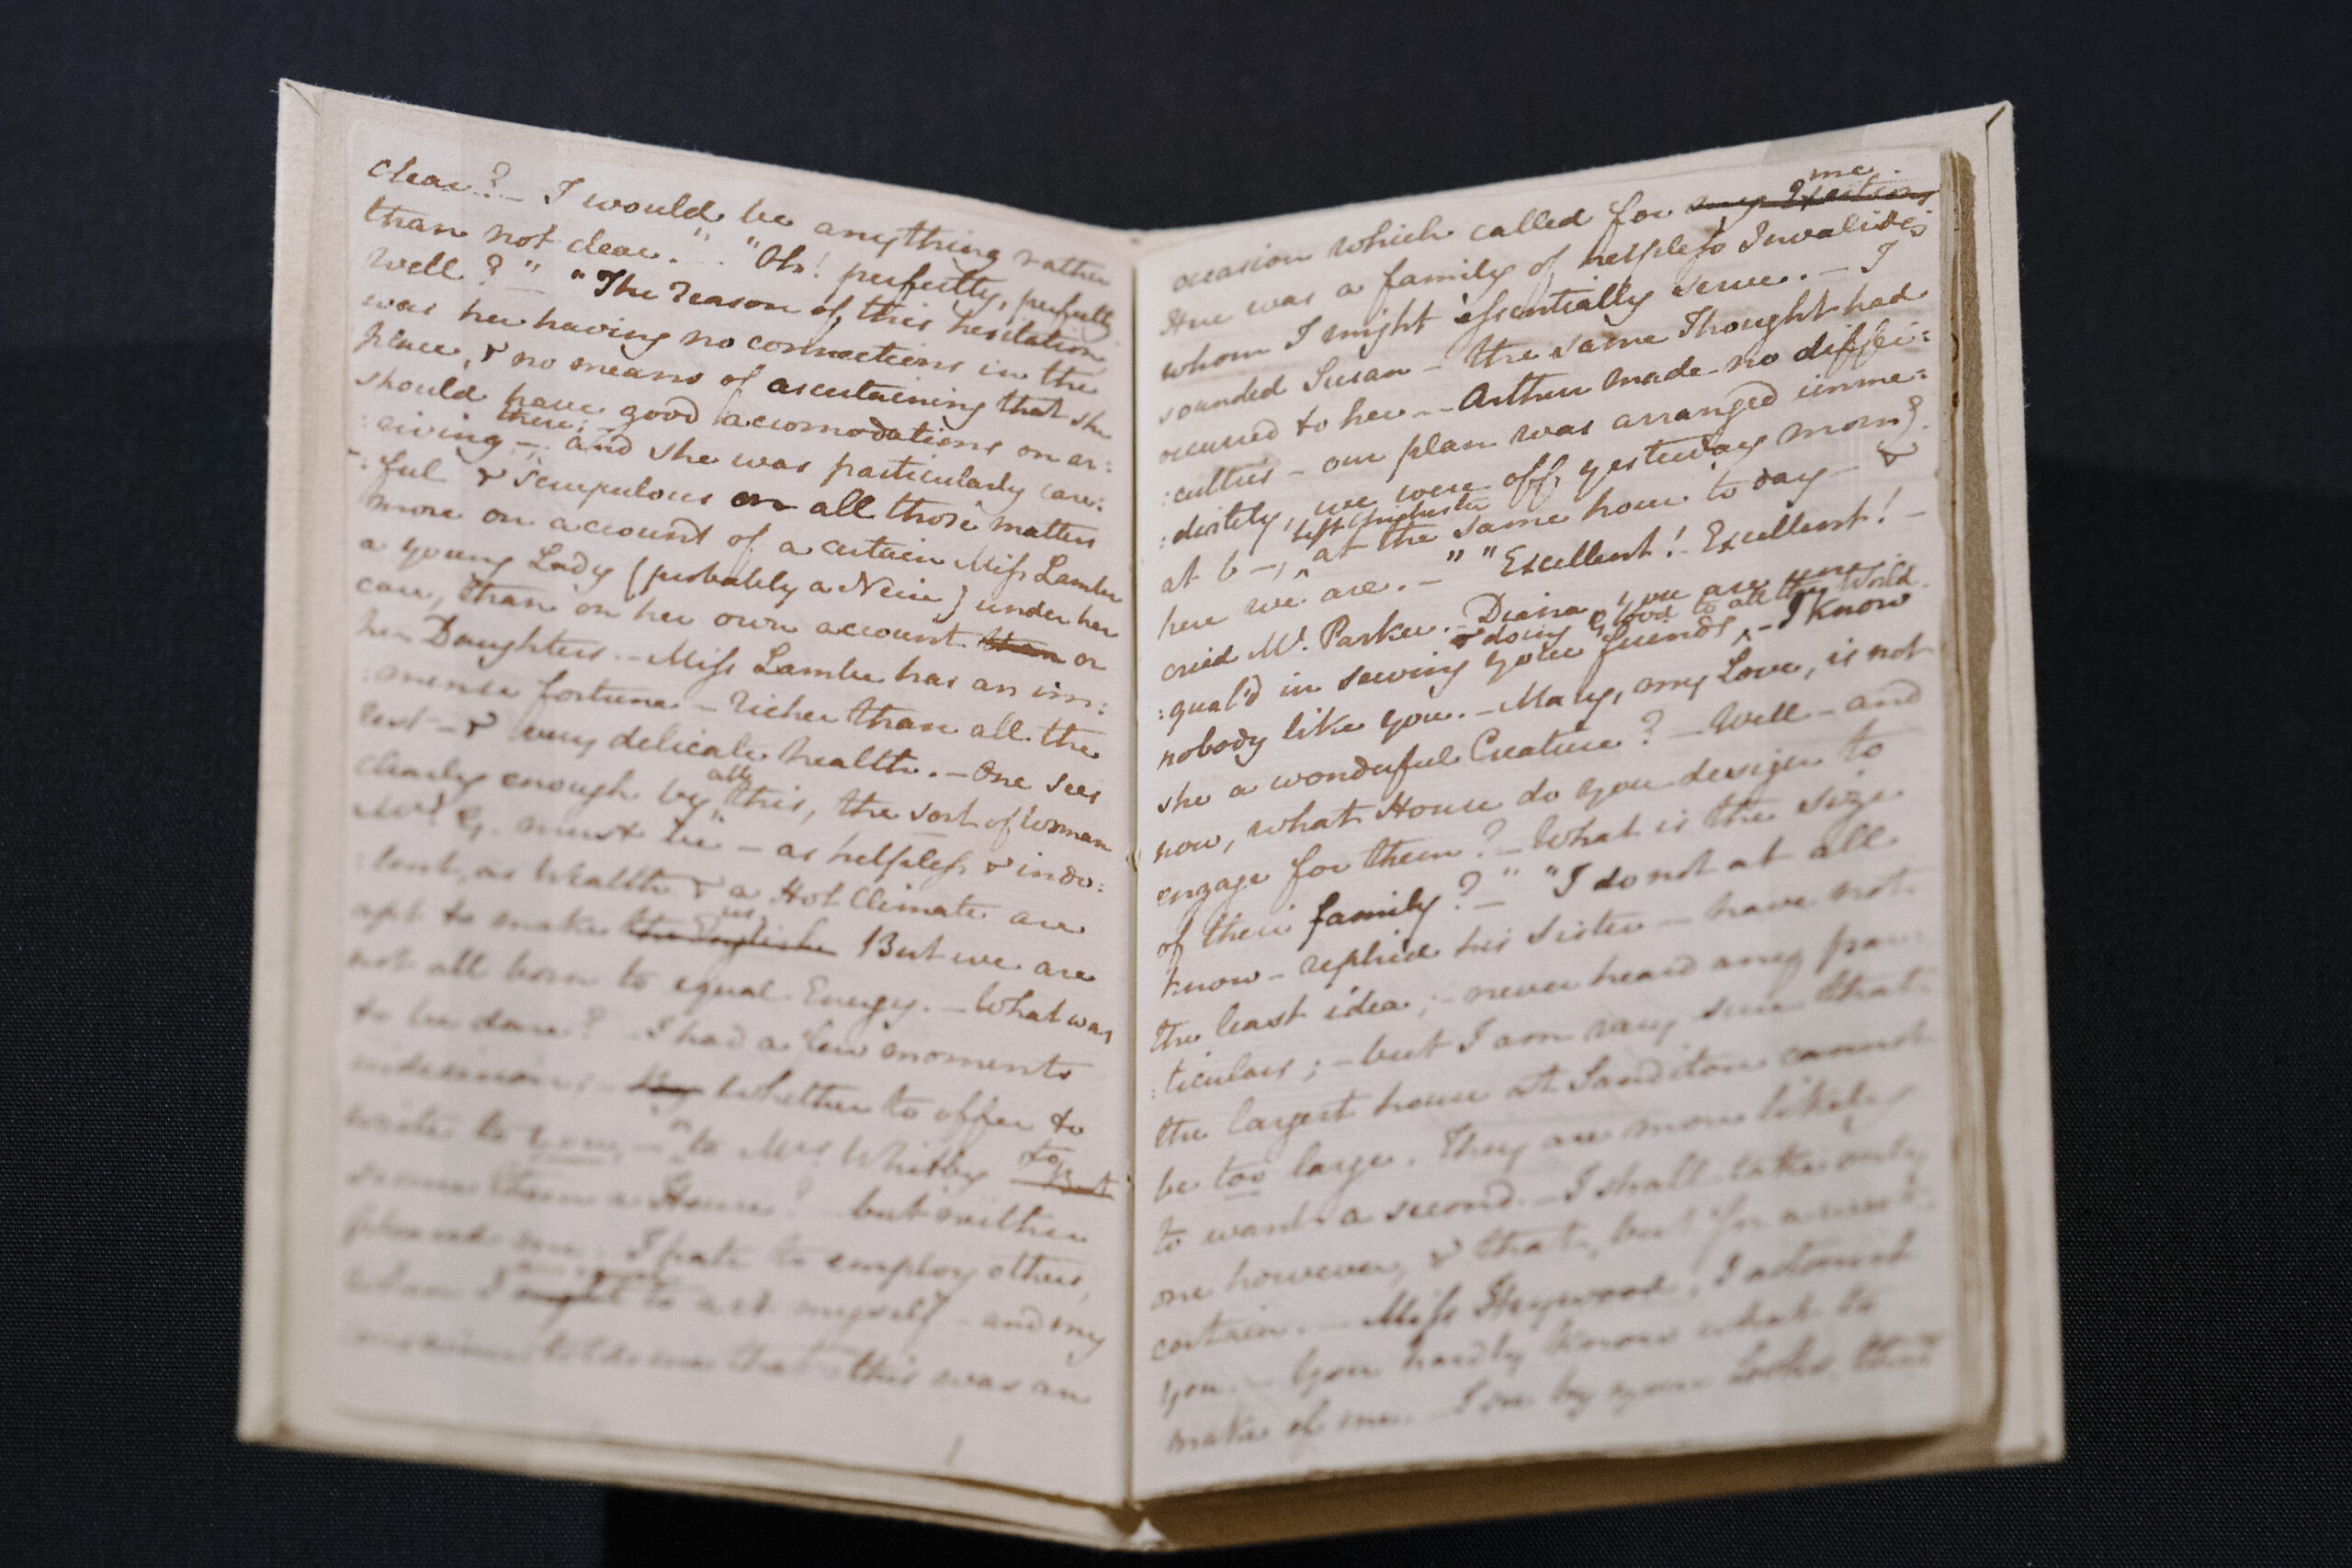 clear? — I would be anything rather
than not clear." — "Oh! perfectly, perfectly
well?" — "The reason of this hesitation
was her having no connections in the
place, & no means of ascertaining that she
should have good accomodations on ar:
there;
:riving — and she was particularly care:
:ful & scrupulous on all those matters
more on account of a certain Miss Lambe
a young Lady (probably a Neice) under her
care, than on her own account than or
her Daughters. — Miss Lambe has an im:
:mense fortune — richer than all the
rest — & very delicate health. — One sees
all
clearly enough by this, the sort of Woman
Mrs. G. must be — as helpless & indo:
:lent, as Wealth & a Hot Climate are
us.
apt to make the English But we are
not all born to equal Energy. — What was
to be done? — I had a few moments
indecision; — Whether to offer to
or
write to you, — to Mrs. Whitby to
But
secure them a House? — but neither
pleased me. — I hate to employ others,
when I to act myself — and my
conscience told me that this was an
me.
occasion which called for my Exertions
Here was a family of helpless Invalides
whom I might essentially serve. — I
sounded Susan — the same Thought had
occurred to her. — Arthur made no diffi:
:culties — our plan was arranged imme:
:diately, we were off yesterday morng.
left Chichester
at 6 —, at the same hour to day — &
here we are. —" "Excellent! Excellent! —
cried Mr. Parker. — Diana, you are une:
& doing Good to all the World.
:qual'd in serving your friends, — I know
nobody like you. — Mary, my Love, is not
she a wonderful Creature? — Well — and
now, what House do you design to
engage for them? — What is the size
of their family? —" "I do not at all
know — replied his Sister — have not
the least idea; — never heard any par:
:ticulars; — but I am very sure that
the largest house at Sanditon cannot
be too large. They are more likely
to want a second. — I shall take only
one however, & that, but for a week
certain. — Miss Heywood, I astonish
you. — You hardly know what to
make of me. — I see by your Looks, that